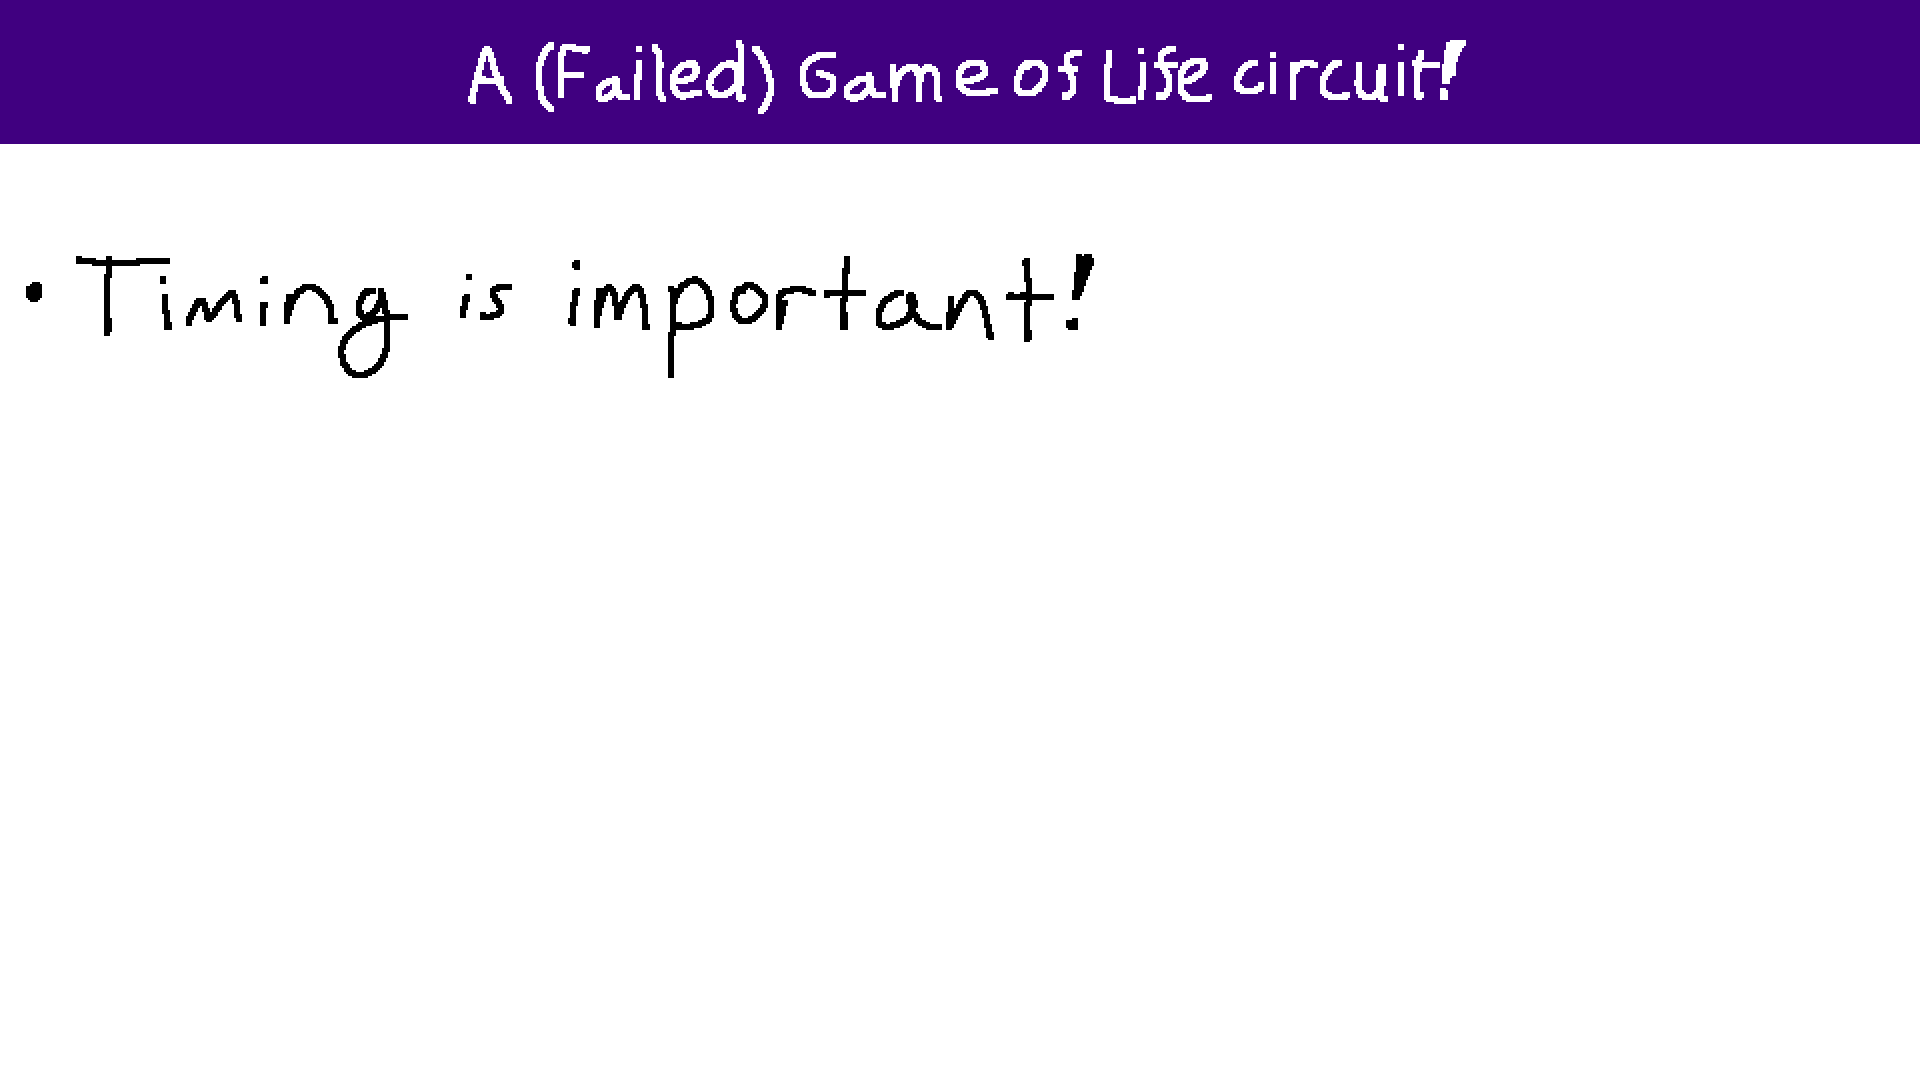 A (Failed) Game of Life circuit!
• Timing is important!